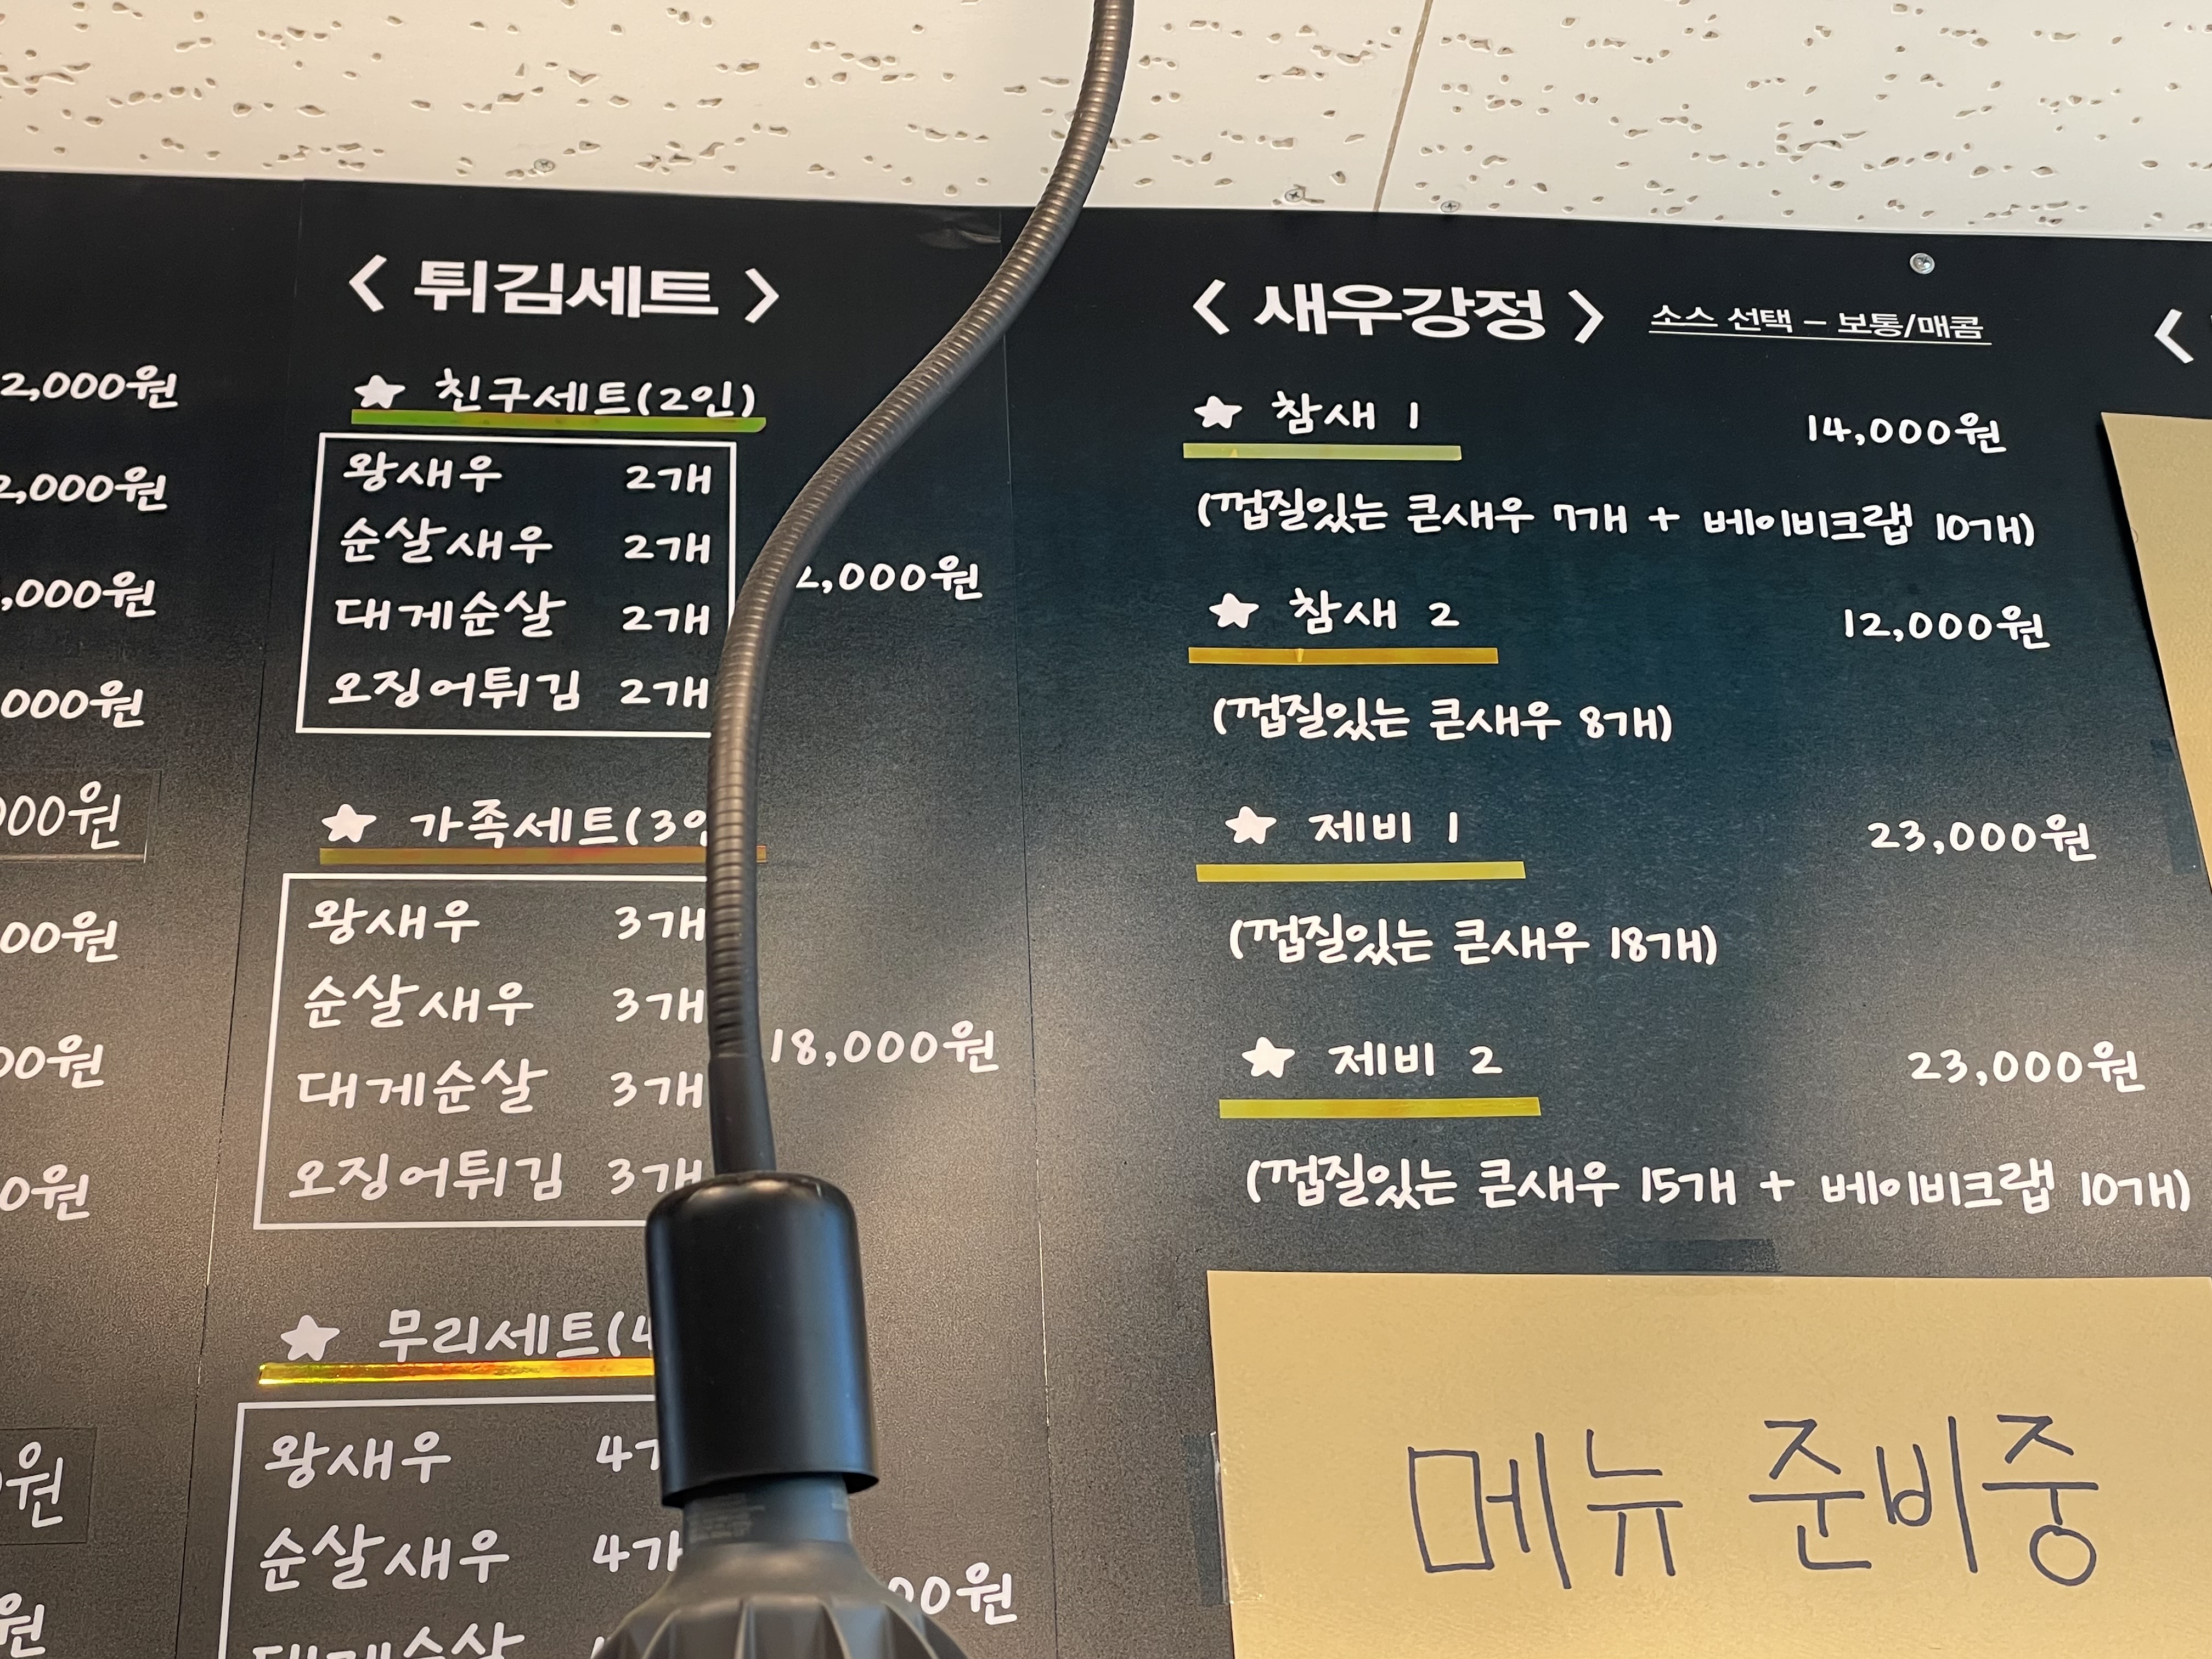 2,000원
2,000원
,000원
000원
000원
00원
00원
0원
원
원
< 튀김세트 >
★ 친구세트(2인)
왕새우 2개
순살새우 2개
대게순살 2개
오징어튀김 2개
2,000원
★ 가족세트(3인
왕새우 3개
순살새우 3개
대게순살 3개
오징어튀김 3개
18,000원
★ 무리세트(4
왕새우 4개
순살새우 4개
대게순살
00원
< 새우강정 > 소스 선택 - 보통/매콤
★ 참새 1 14,000원
(껍질있는 큰새우 7개 + 베이비크랩 10개)
★ 참새 2 12,000원
(껍질있는 큰새우 8개)
★ 제비 1 23,000원
(껍질있는 큰새우 18개)
★ 제비 2 23,000원
(껍질있는 큰새우 15개 + 베이비크랩 10개)
메뉴 준비중
<